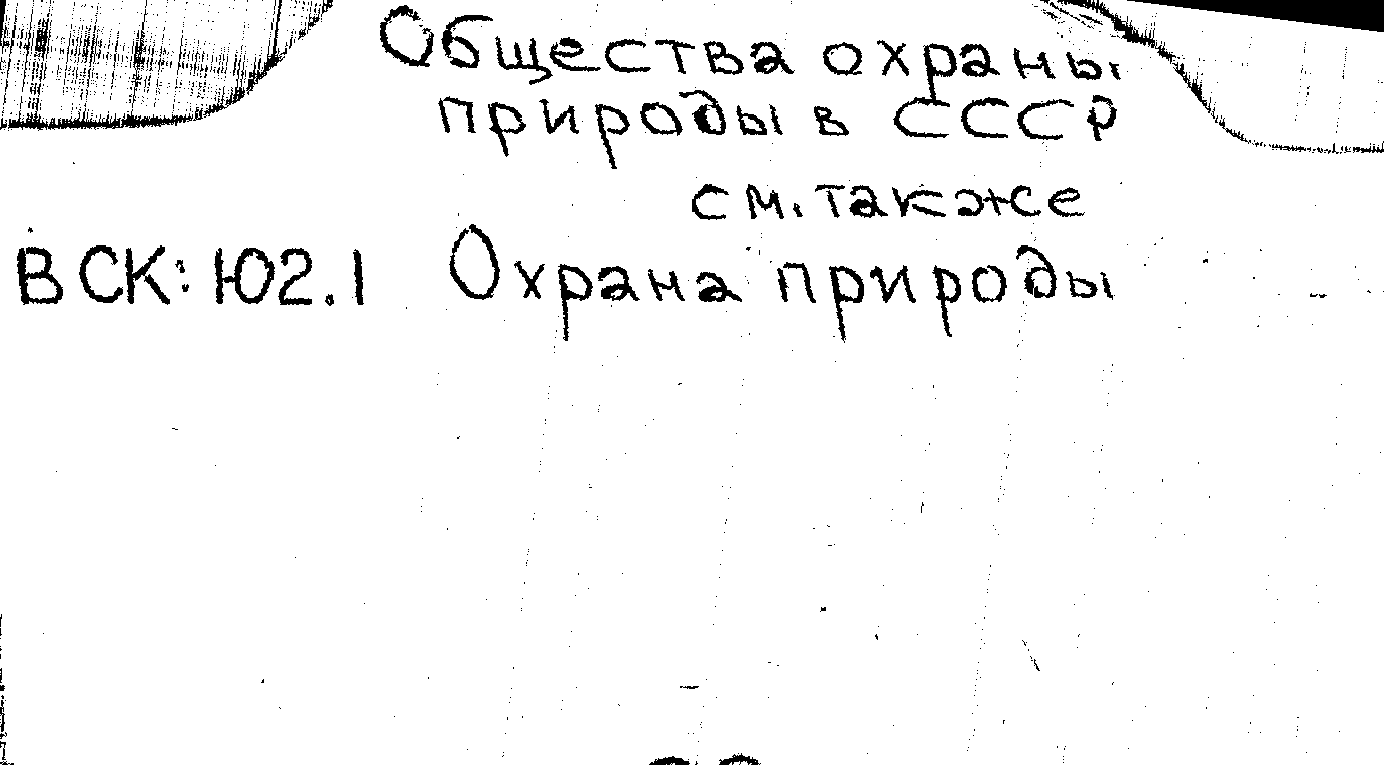 Общества охраны
природы в СССР
см. также
ВСК: Ю2.1 Охрана природы